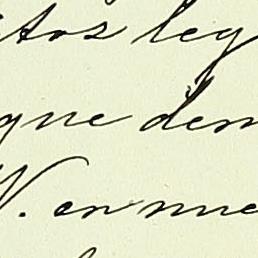 tos leg
que dem
V. en nue